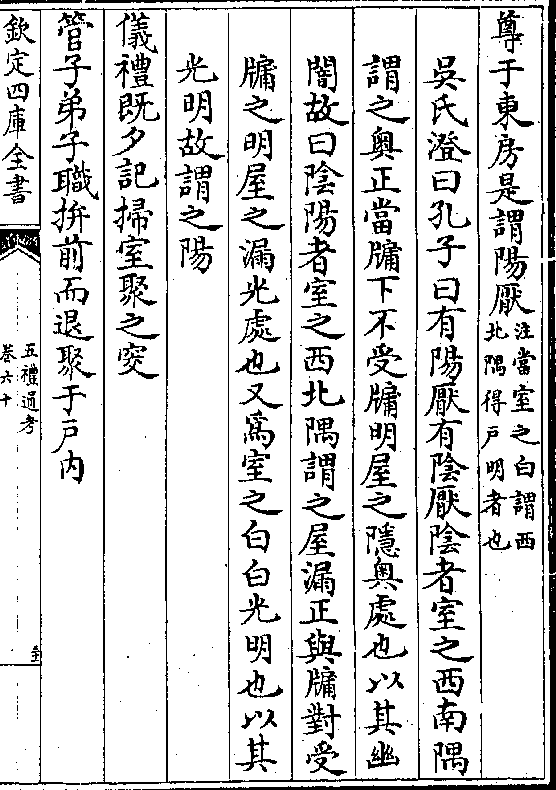 尊于東房是謂陽厭注當室之白謂西
北隅得戶明者也
吳氏澄曰孔子曰有陽厭有陰厭陰者室之西南隅
謂之奧正當牖下不受牖明屋之隱奧處也以其幽
闇故曰陰陽者室之西北隅謂之屋漏正與牖對受
牖之明屋之漏光處也又爲室之白白光明也以其
光明故謂之陽
儀禮既夕記掃室聚之窔
管子弟子職拚前而退聚于戶内
欽定四庫全書
五禮通考
卷六十